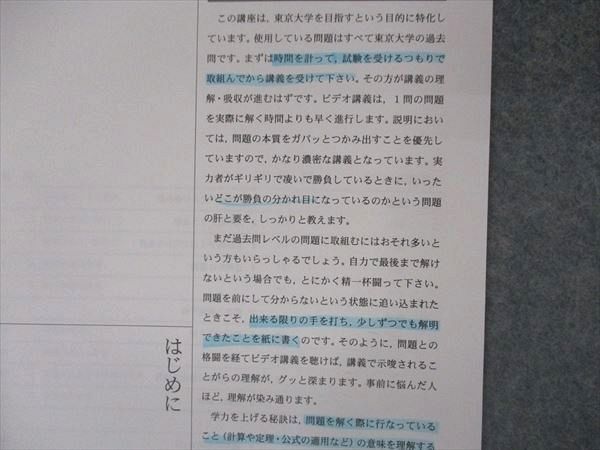 この講座は，東京大学を目指すという目的に特化し
ています。使用している問題はすべて東京大学の過去
問です。まずは時間を計って，試験を受けるつもりで
取組んでから講義を受けて下さい。その方が講義の理
解・吸収が進むはずです。ビデオ講義は，1問の問題
を実際に解く時間よりも早く進行します。説明におい
ては，問題の本質をガバッとつかみ出すことを優先し
ていますので，かなり濃密な講義となっています。実
力者がギリギリで凌いで勝負しているときに，いった
いどこが勝負の分かれ目になっているのかという問題
の肝と要を，しっかりと教えます。
まだ過去問レベルの問題に取組むにはおそれ多いと
いう方もいらっしゃるでしょう。自力で最後まで解け
ないという場合でも，とにかく精一杯闘って下さい。
問題を前にして分からないという状態に追い込まれた
ときこそ，出来る限りの手を打ち，少しずつでも解明
できたことを紙に書くのです。そのように，問題との
格闘を経てビデオ講義を聴けば，講義で示唆されるこ
とがらの理解が，グッと深まります。事前に悩んだ人
ほど，理解が染み通ります。
学力を上げる秘訣は，問題を解く際に行なっている
こと（計算や定理・公式の適用など）の意味を理解する
はじめに